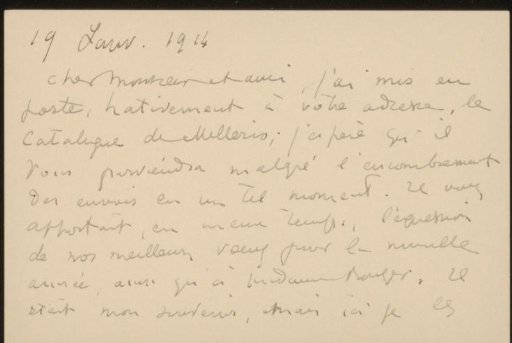 19 Janv. 1914
cher Monsieur et ami, j'ai mis en
poste, hativement à votre adresse, le
Catalogue de Mellerio; j'espère qu'il
vous parviendra malgré l'encombrement
des envois en un tel moment. Il vous
apportait, en même temps, l'expression
de nos meilleurs voeux pour la nouvelle
année, ainsi qu'à Madame. Il
était mon souvenir, mais ici je les